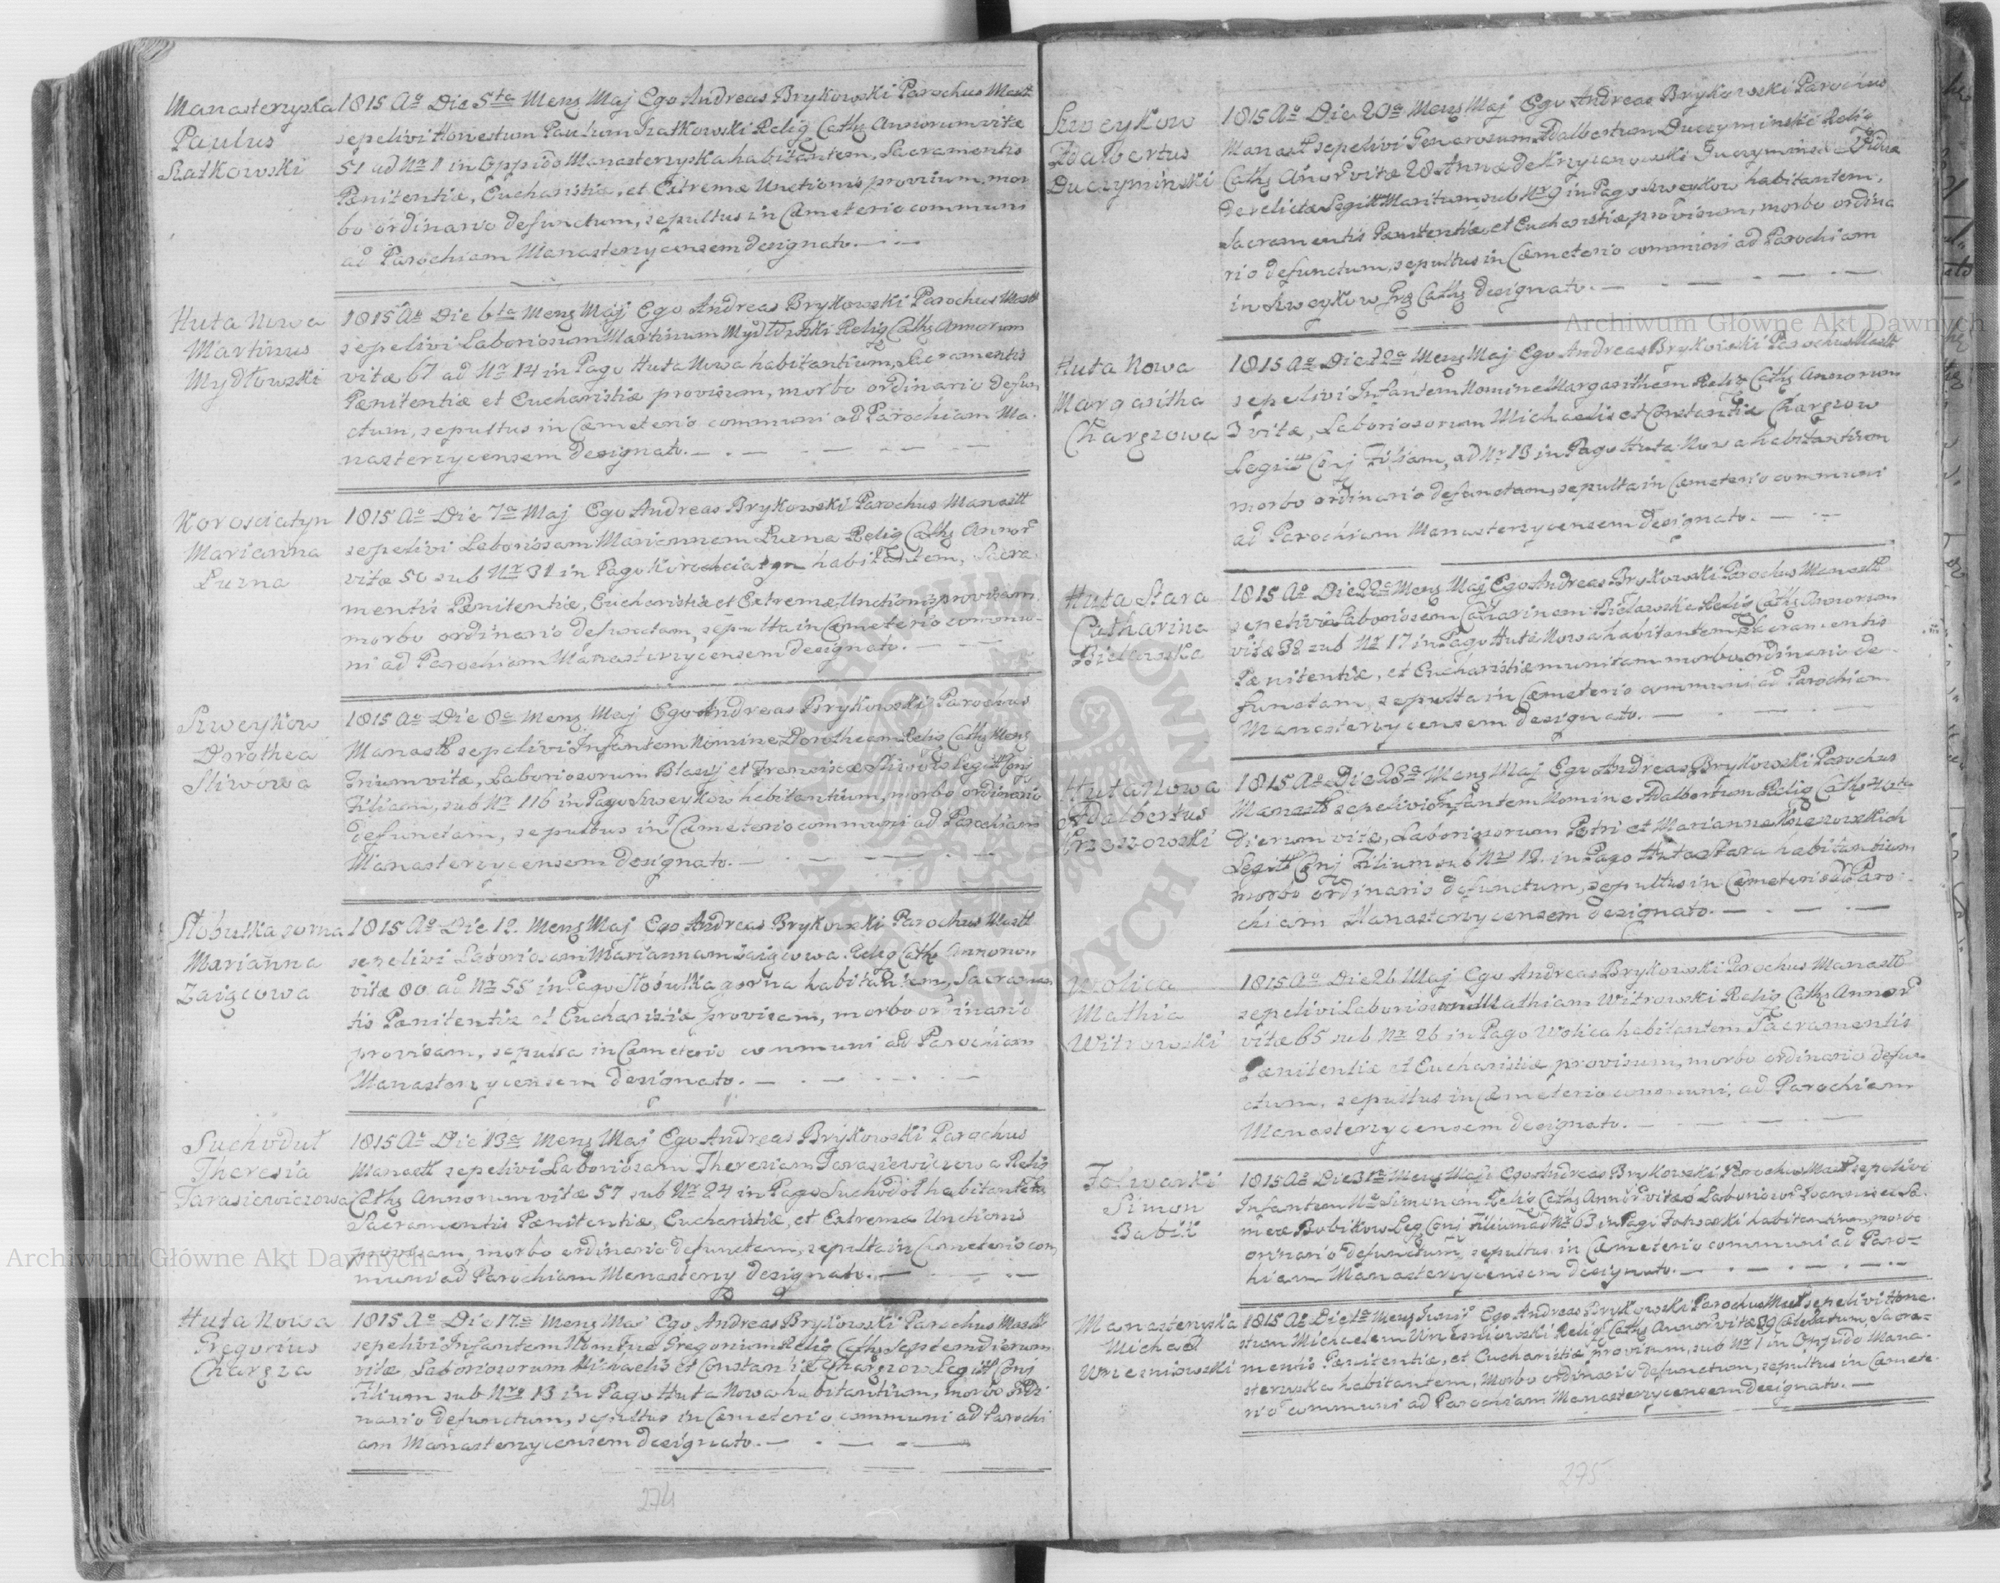 Manasterzyska
Paulus
Szatkowski
1815 Ao Die 5ta Mens Maj Ego Andreas Brykowski Parochus Mastt
sepelivi Honestum Paulum Szatkowski Relig Cath Annorum vitæ
51 ad Nr 1 in Oppido Manasterzyska habitantem, Sacramentis
Pænitentiæ, Eucharistiæ, et Extremæ Unctionis provisum, mor
bo ordinario defunctum, sepultus in Cæmeterio communi
ad Parochiam Manasterzycensem designato.
Huta Nowa
Martinus
Mydłowski
1815 Ao Die 6ta Mens Maj Ego Andreas Brykowski Parochus Mastt
sepelivi Laboriosum Martinum Mydłowski Relig Cath Annorum
vitæ 67 ad Nr 14 in Pago Huta Nowa habitantium, Sacramentis
Pænitentiæ et Eucharistiæ provisum, morbo ordinario defun
ctum, sepultus in Cæmeterio communi ad Parochiam Ma-
nasterzycensem designato.
Korosciatyn
Marianna
Łuzna
1815 Ao Die 7a Maj Ego Andreas Brykowski Parochus Manastt
sepelivi Laboriosam Mariannam Łuzna Relig Cath Annor
vitæ 50 sub Nr 31 in Pago Korosciatyn habitantem, Sacra-
mentis Pænitentiæ, Eucharistiæ et Extremæ Unctionis provisam
morbo ordinario defunctam, sepulta in Cæmeterio commu-
ni ad Parochiam Manasterzycensem designato.
Szweykow
Dorothea
Sliwowa
1815 Ao Die 8a Mens Maj Ego Andreas Brykowski Parochus
Manastt sepelivi Infantem Nomine Dorotheam Relig Cath Mens
Trium vitæ, Laboriosorum Blasij et Franciscæ Legitt Conj
Filiam, sub Nr 116 in Pago Szweykow habitantium, morbo ordinario
defunctam, sepultus in Cæmeterio communi ad Parochiam
Manasterzycensem designato.
Słobutka gorna
Marianna
Zaigcowa
1815 Ao Die 12. Mens Maj Ego Andreas Brykowski Parochus Mastt
sepelivi Laboriosam Mariannam Zaigcowa Relig Cath Annorum
vitæ 80 ad Nr 55 in Pago Słobutka gorna habitantem, Sacramen
tis Pænitentiæ et Eucharistiæ provisam, morbo ordinario
provisam, sepulta in Cæmeterio communi ad Parochiam
Manasterzycensem designato.
Suchoduł
Theresia
Tarasiewiczowa
1815 Ao Die 13a Mens Maj Ego Andreas Brykowski Parochus
Manastt sepelivi Laboriosam Theresiam Tarasiewiczowa Relig
Cath Annorum vitæ 57 sub Nr 24 in Pago Suchodoł habitantem
Sacramentis Pænitentiæ, Eucharistiæ, et Extremæ Unctionis
provisam, morbo ordinario defunctam, sepulta in Cæmeterio com
muni ad Parochiam Manasterzy designato.
Huta Nowa
Gregorius
Chargza
1815 Ao Die 17a Mens Maj Ego Andreas Brykowski Parochus Mastt
sepelivi Infantem Nomine Gregorium Relig Cath Septem dierum
vitæ, Laboriosorum Michaelis et Constantiæ Chargzow Legitt Conj
Filium sub Nro 13 in Pago Huta Nowa habitantium, morbo ordi
nario defunctum, sepultus in Cæmeterio communi ad Parochi
am Manasterzycensem designato.
274
Szweykow
Adalbertus
Duczyminski
1815 Ao Die 20a Mens Maj Ego Andreas Brykowski Parochus
Manastt sepelivi Generosum Adalbertum Duczyminski Reli-
Cath Anor vitæ 28 Annæ de
derelictæ Legitt Maritum sub Nr 9 in Pago Szweykow habitantem,
Sacramentis Pænitentiæ, et Eucharistiæ provisum, morbo ordina
rio defunctum, sepultus in Cæmeterio communi ad Parochiam
in Szweykow Cath designato.
Huta Nowa
Margaritha
Chargzowa
1815 Ao Die 22a Mens Maj Ego Andreas Brykowski Parochus Mastt
sepelivi Infantem Nomine Margaritham Relig Cath Annorum
3 vitæ, Laboriosorum Michaelis et Constantiæ Chargzow
Legitt Conj Filiam, ad Nr 13 in Pago Huta Nowa habitantium
morbo ordinario defunctam, sepulta in Cæmeterio communi
ad Parochiam Manasterzycensem designato.
Huta Stara
Catharina
Bielawska
1815 Ao Die 22a Mens Maj Ego Andreas Brykowski Parochus Manastt
sepelivi Laboriosam Catharinam Bielawska Relig Cath Annorum
vitæ 38 sub Nr 17 in Pago Huta Nowa habitantem, Sacramentis
Pænitentiæ, et Eucharistiæ munitam morbo ordinario de-
functam, sepulta in Cæmeterio communi ad Parochiam
Manasterzycensem designato.
Huta Nowa
Adalbertus
1815 Ao Die 23a Mens Maj Ego Andreas Brykowski Parochus
Manastt sepelivi Infantem Nomine Adalbertum Relig Cath
dierum vitæ, Laboriosorum Petri et Mariannæ
Legitt Conj Filium sub Nr 12 in Pago Huta Stara habitantium
morbo ordinario defunctum, sepultus in Cæmeterio ad Paro-
chiam Manasterzycensem designato.
Wolica
Mathia
Witrowski
1815 Ao Die 26 Maj Ego Andreas Brykowski Parochus Manastt
sepelivi Laboriosum Mathiam Witrowski Relig Cath Annor
vitæ 65 sub Nr 26 in Pago Wolica habitantem Sacramentis
Pænitentiæ et Eucharistiæ provisum, morbo ordinario defun-
ctum, sepultus in Cæmeterio communi, ad Parochiam
Manasterzycensem designato.
Folwarki
Simon
Babii
1815 Ao Die 31a Mens Maji Ego Andreas Brykowski Parochus Mastt sepelivi
Infantem Ne Simonem Relig Cath Anni vitæ Laboriosor Joannis et
Bobikow Leg Conj Filium ad Nr 63 in Pago Folwarki habitantium, morbo
ordinario defunctum, sepultus in Cæmeterio communi ad Paro-
hiam Manasterzycensem designato.
Manasterzyska
Michael
Wnesniowski
1815 Ao Die 1a Mens Junii Ego Andreas Brykowski Parochus Mastt sepelivi Hone-
stum Michaelem Wnesniowski Relig Cath Annor vitæ Cælebatum, Sacra-
mentis Pænitentiæ, et Eucharistiæ provisum, sub Nr 1 in Oppido Mana-
sterzyska habitantem, morbo ordinario defunctum, sepultus in Cæmete-
rio communi ad Parochiam Manasterzycensem designato.
275
Archiwum Główne Akt Dawnych
Archiwum Główne Akt Dawnych
ARCHIWUM GŁÓWNE AKT DAWNYCH